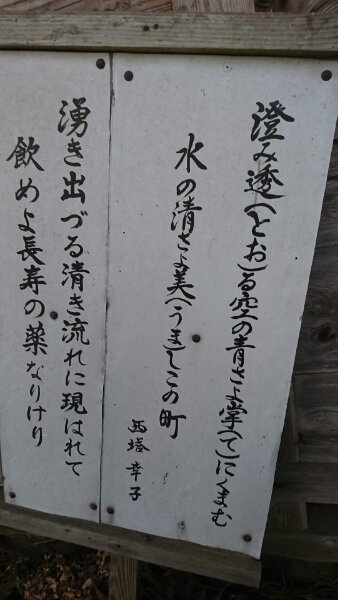 澄み透(とお)る空の青さよ掌(て)にくまむ
水の清さよ美(うま)しこの町
西塔 幸子
湧き出づる清き流れに現はれて
飲めよ長寿の薬なりけり